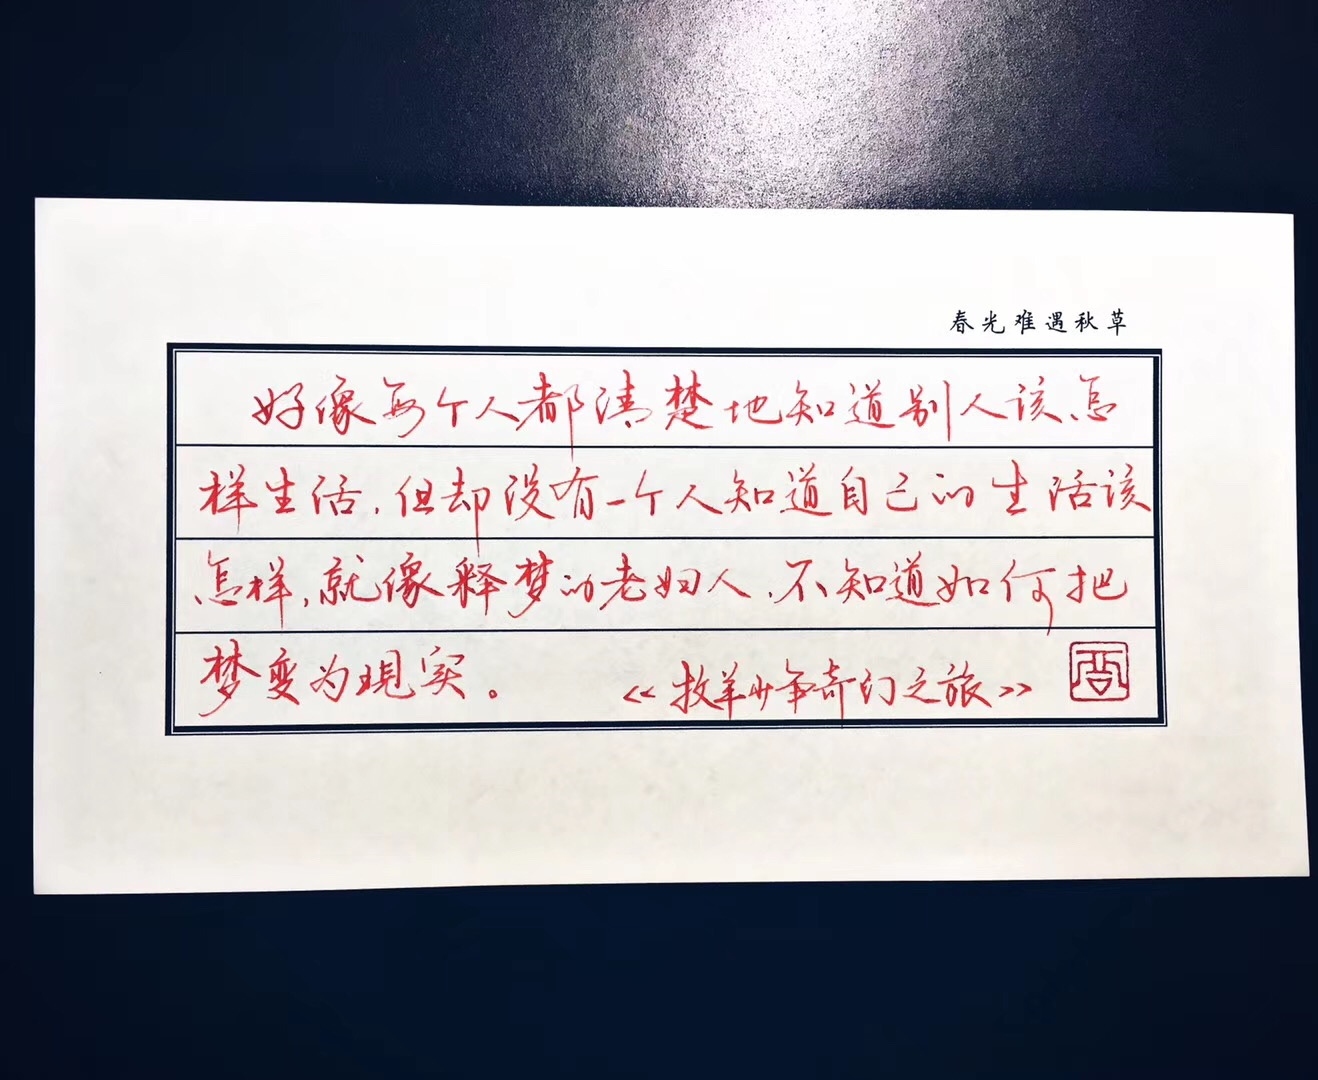 春光难遇秋草
好像每个人都清楚地知道别人该怎
样生活，但却没有一个人知道自己的生活该
怎样，就像释梦的老妇人，不知道如何把
梦变为现实。 《牧羊少年奇幻之旅》